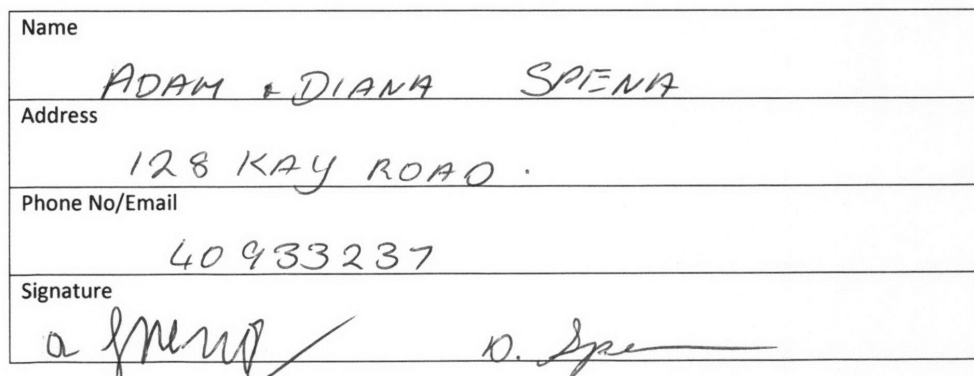 Name
ADAM & DIANA SPENA
Address
128 KAY ROAD.
Phone No/Email
40933237
Signature
a Spena D. Spe